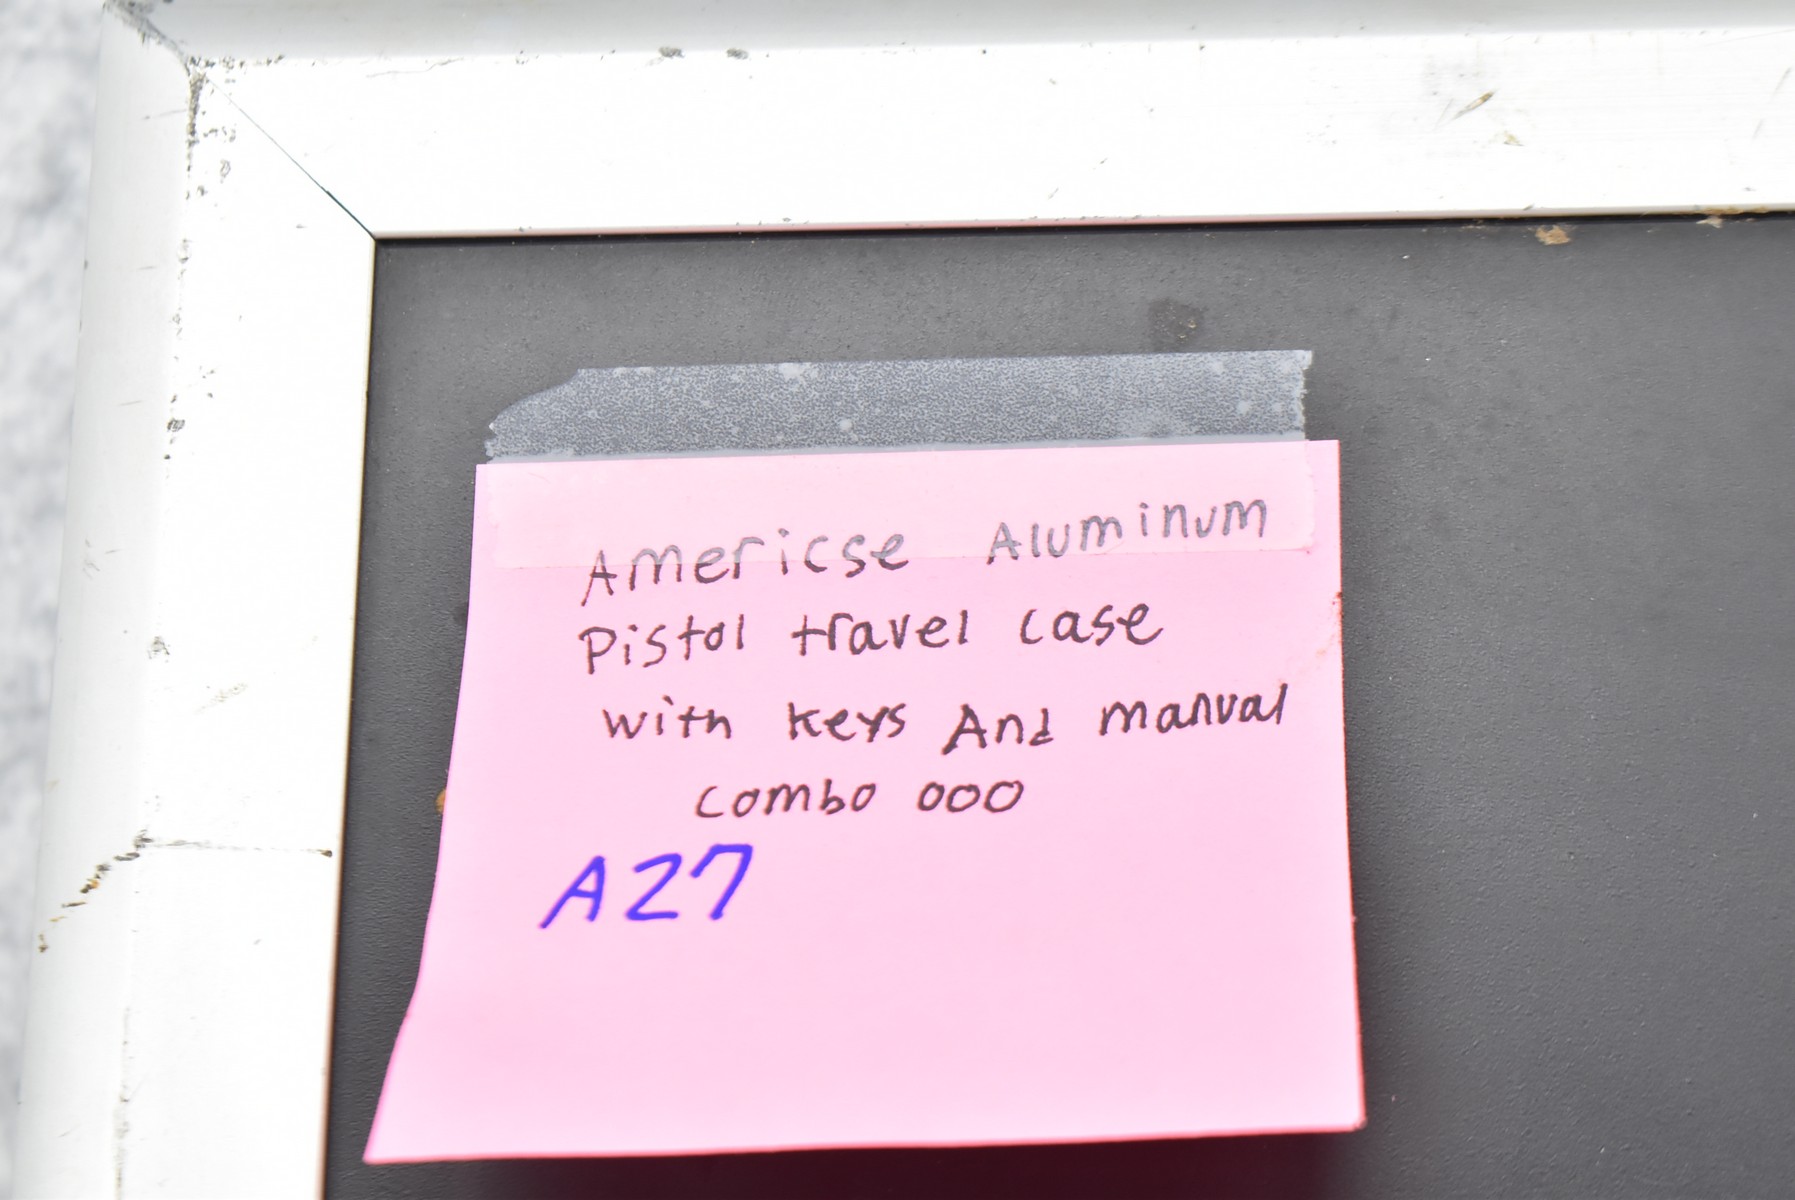 Americse Aluminum
Pistol travel case
with keys And manual
combo 000
A27